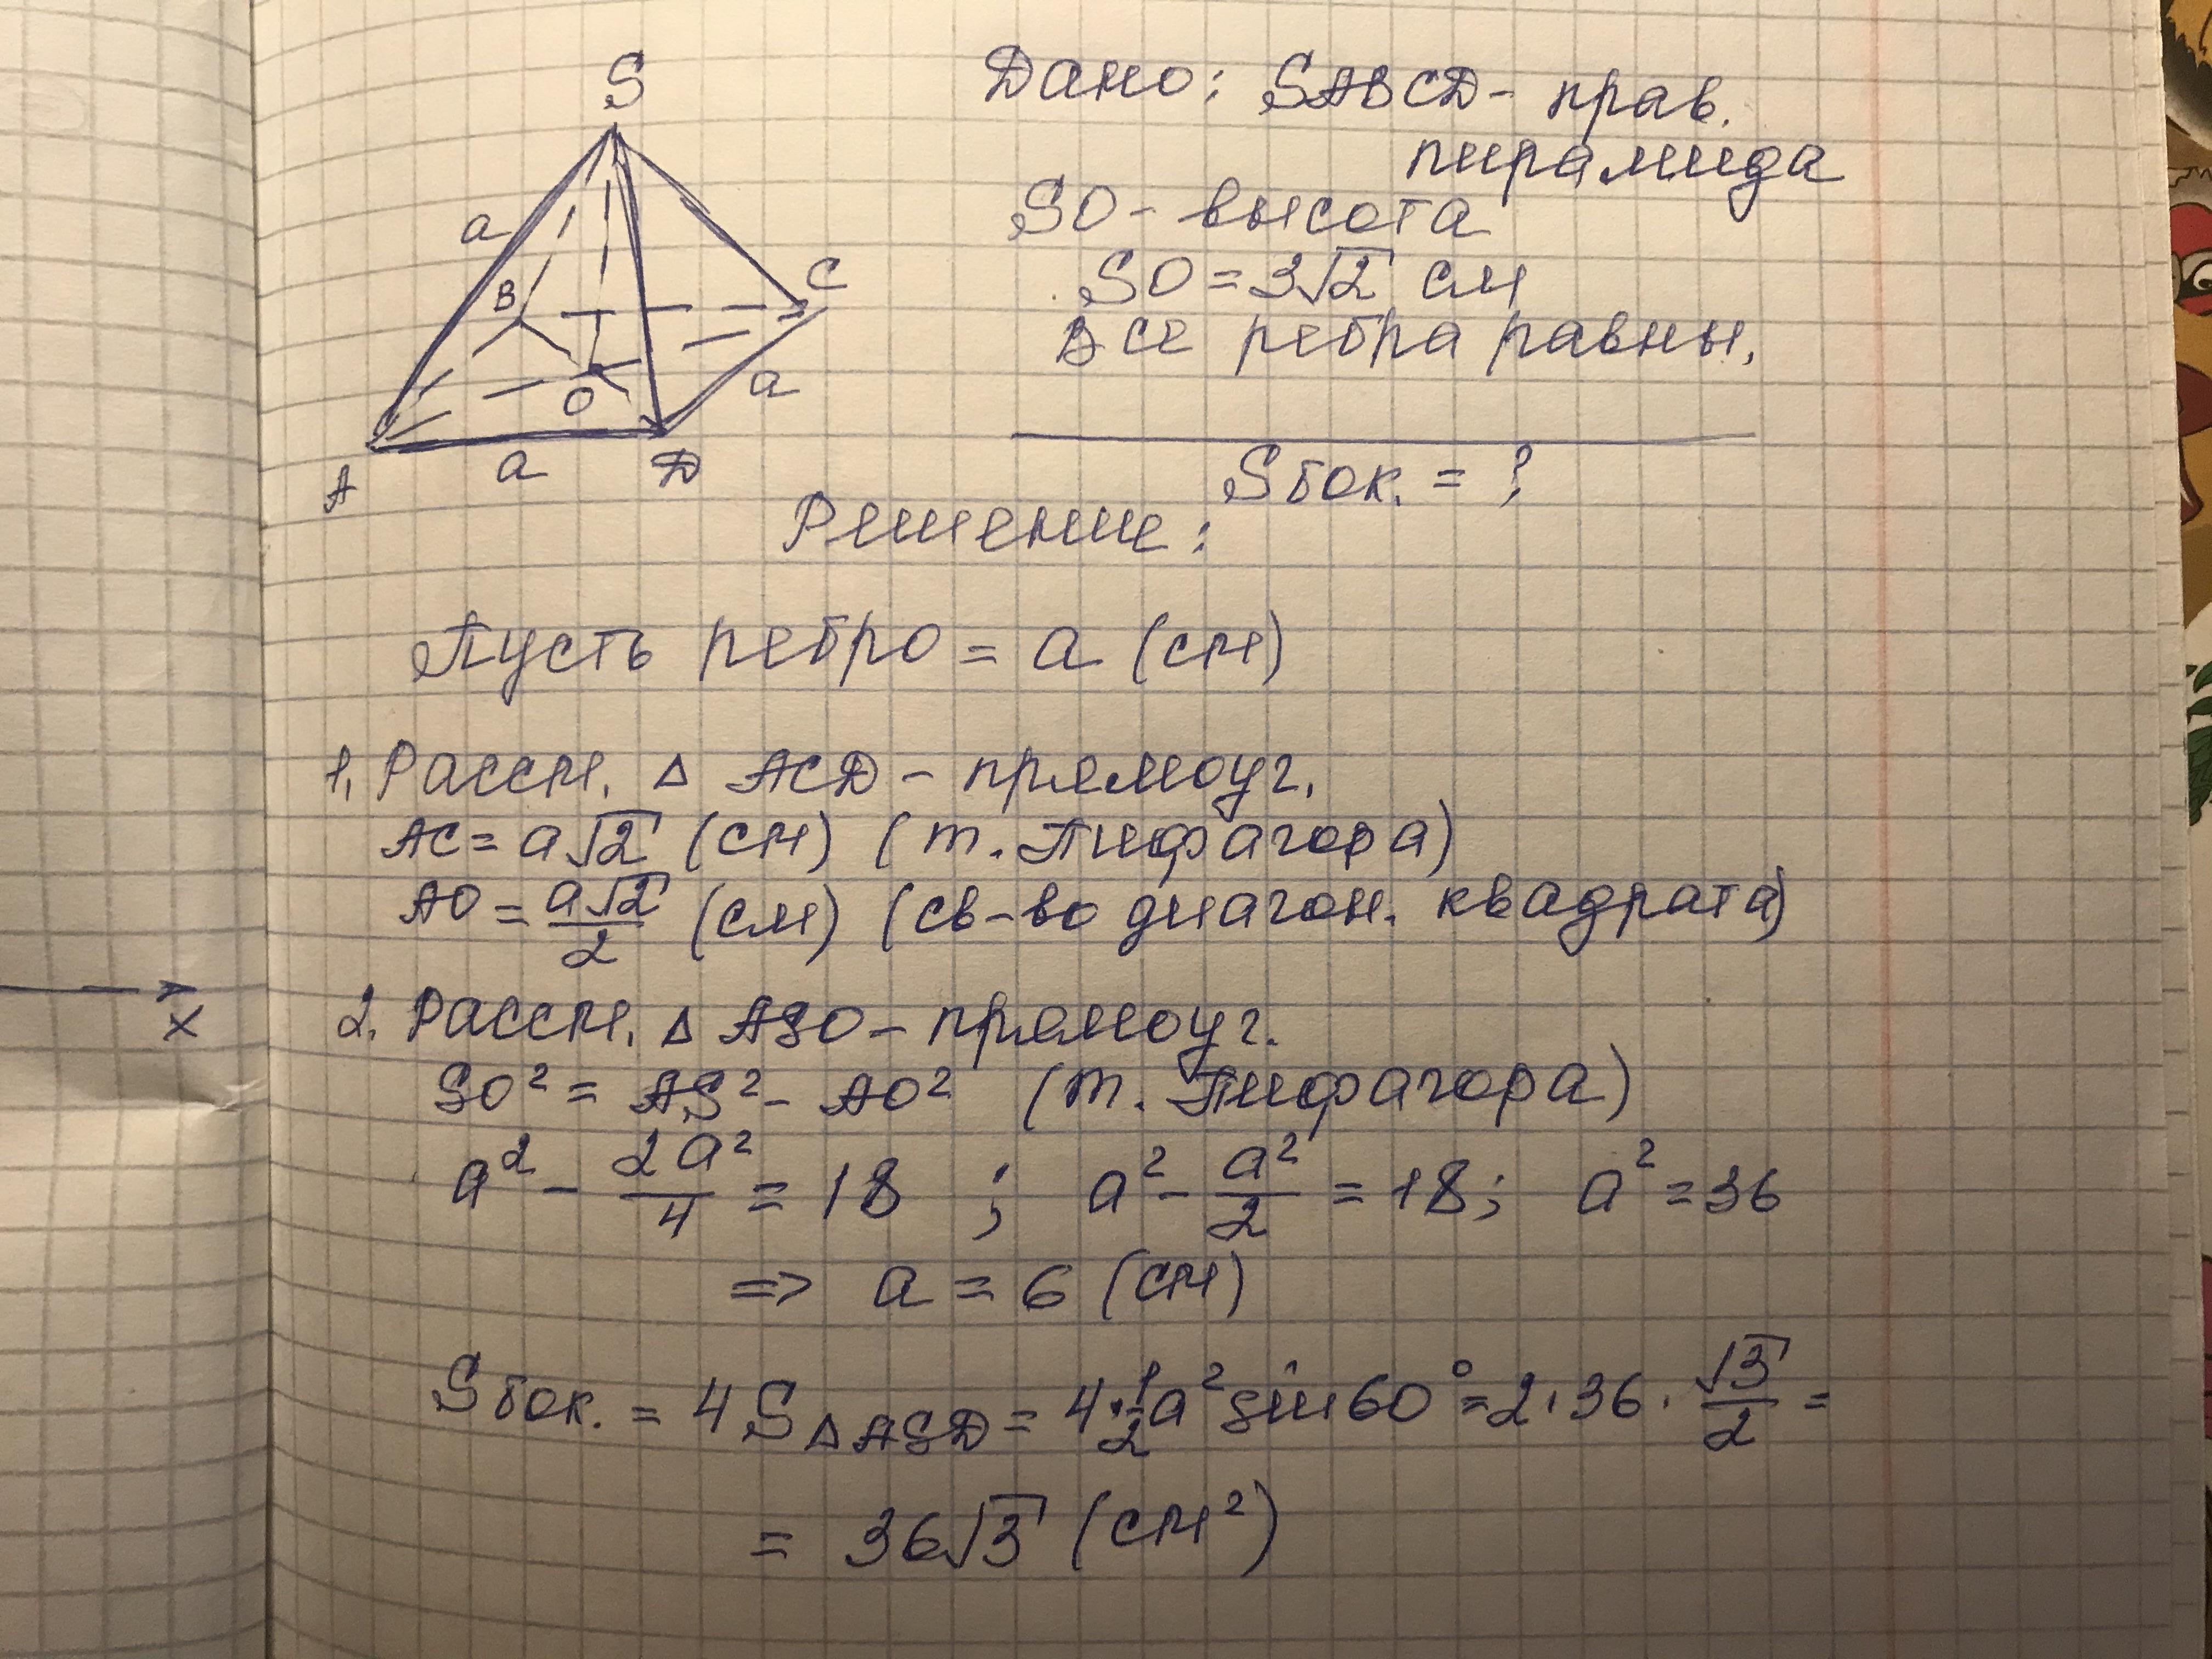 S
a
B
C
O
a
A
a
D
Дано: SABCD - прав.
пирамида
SO - высота
SO = 3√2 см
Все ребра равны.
Sбок. = ?
Решение:
Пусть ребро = a (см)
1. Рассм. △ ACD - прямоуг.
AC = a√2 (см) (т. Пифагора)
AO = a√2/2 (см) (св-во диагон. квадрата)
x
2. Рассм. △ ASO - прямоуг.
SO² = AS² - AO² (т. Пифагора)
a² - 2a²/4 = 18 ; a² - a²/2 = 18; a² = 36
=> a = 6 (см)
Sбок. = 4S△ASD = 4·1/2a² sin60° = 2·36·√3/2 =
= 36√3 (см²)